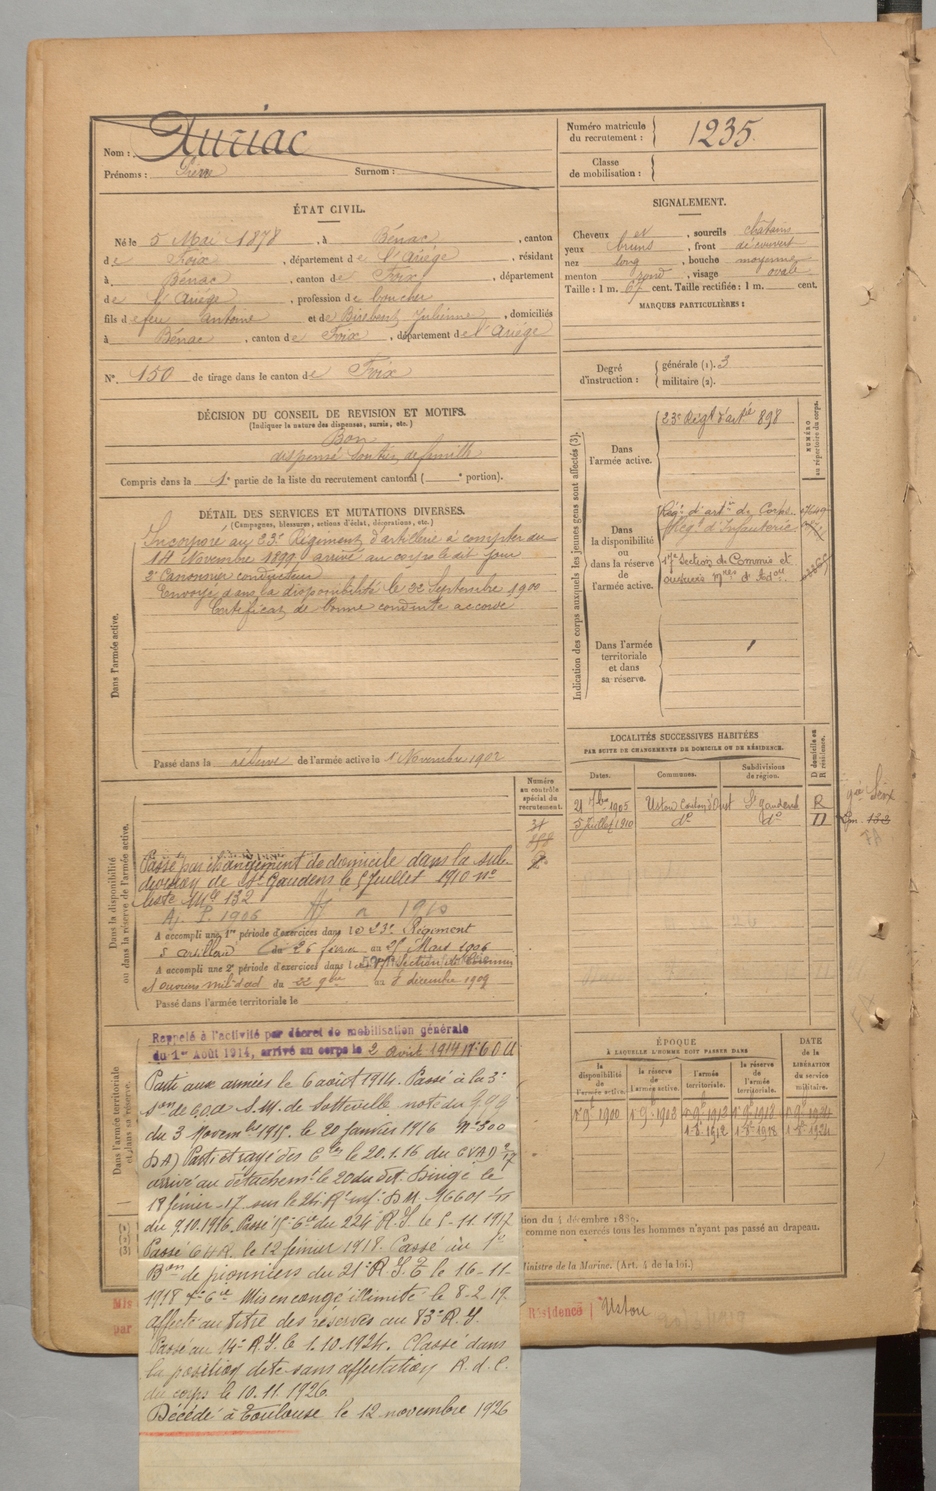 Nom : Auriac
Prénoms : Pierre Surnom :
Numéro matricule du recrutement : 1235
Classe de mobilisation :
ÉTAT CIVIL.
Né le 5 Mai 1878, à Bénac, canton
de Foix, département de l'Ariège, résidant
à Bénac, canton de Foix, département
de l'Ariège, profession de boucher
fils de feu Antoine et de Birebent Julienne, domiciliés
à Bénac, canton de Foix, département de l'Ariège
N° 150 de tirage dans le canton de Foix
SIGNALEMENT.
Cheveux et, sourcils chatains
yeux bruns, front découvert
nez long, bouche moyenne
menton rond, visage ovale
Taille : 1 m. 67 cent. Taille rectifiée : 1 m. cent.
MARQUES PARTICULIÈRES :
Degré d'instruction : générale (1). 3
militaire (2).
DÉCISION DU CONSEIL DE REVISION ET MOTIFS.
(Indiquer la nature des dispenses, sursis, etc.)
Bon
dispensé soutien de famille
Compris dans la 1e partie de la liste du recrutement cantonal ( e portion).
DÉTAIL DES SERVICES ET MUTATIONS DIVERSES.
(Campagnes, blessures, actions d'éclat, décorations, etc.)
Dans l'armée active.
Incorporé au 23e Régiment d'artillerie à compter du
14 Novembre 1899, arrivé au corps le dit jour
2e Canonnier conducteur
Envoyé dans la disponibilité le 22 Septembre 1900
Certificat de bonne conduite accordé
Passé dans la réserve de l'armée active le 1 Novembre 1902
Indication des corps auxquels les jeunes gens sont affectés (3).
NUMÉRO au répertoire du corps.
Dans l'armée active.
23e Régt d'artie 898
Dans la disponibilité ou dans la réserve de l'armée active.
Régt d'artie de Corps
Régt d'Infanterie
17e Section de Commis et
ouvriers mres d'Adon
Dans l'armée territoriale et dans sa réserve.
LOCALITÉS SUCCESSIVES HABITÉES
PAR SUITE DE CHANGEMENTS DE DOMICILE OU DE RÉSIDENCE.
Dates. Communes. Subdivisions de région. D domicile ou R résidence.
21 7bre 1905 Ustou Canton d'Oust St Gaudens R
5 juillet 1910 do do D
Numéro au contrôle spécial du recrutement.
Dans la disponibilité ou dans la réserve de l'armée active.
Passé par changement de domicile dans la sub-
division de St Gaudens le 5 Juillet 1910 no
liste Mle 132
A. P. 1906 1910
A accompli une 1re période d'exercices dans le 23e Régiment
d'artillerie du 26 février au 25 Mars 1906
A accompli une 2e période d'exercices dans la 17e Section de Commis
et ouvriers mil. d'ad du 22 9bre au 8 décembre 1909
Passé dans l'armée territoriale le
Dans l'armée territoriale et dans sa réserve.
Rappelé à l'activité par décret de mobilisation générale
du 1er Août 1914, arrivé au corps le 2 Août 1914
Parti aux armées le 6 août 1914. Passé à la 3e
Son de C.O.A. S.M. de Sotteville note du 999
du 3 Novembre 1915. le 20 janvier 1916 No 300
DA) Parti et rayé des Cles le 20.1.16 du CVAD
arrivé au détachemt le 20 du dit. Dirigé le
18 février 17 sur le 24e Rt inf.
du 9.10.1916. Passé 15e Cie du 224e R.I. le 5-11-1917
Passé le 12 février 1918. Passé au 1er
Bon de pionniers du 21e R.I.T. le 16-11-
1918 Mis en congé illimité le 8-2-19.
affecté au titre des réserves au 83e R.I.
Passé au 14e R.I. le 1.10.1924. Classé dans
la position dite sans affectation R. d. C.
du corps le 10.11.1926.
Décédé à Toulouse le 12 novembre 1926
ÉPOQUE
À LAQUELLE L'HOMME DOIT PASSER DANS
la disponibilité de l'armée active. la réserve de l'armée active. l'armée territoriale. la réserve de l'armée territoriale.
DATE de la LIBÉRATION du service militaire.
1er 9bre 1900 1er 9bre 1902 1er 9bre 1912 1er 9bre 1918 1er 9bre 1924
1 8bre 1912 1 8bre 1918 1 8bre 1924
tion du 4 décembre 1889.
comme non exercés tous les hommes n'ayant pas passé au drapeau.
Ministre de la Marine. (Art. 4 de la loi.)
Mis
par
Résidence Ustou